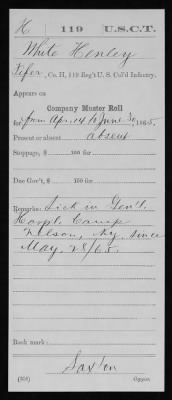 H 119 U.S.C.T.
White Henley
Fifer, Co. H, 119 Reg't U. S. Col'd Infantry.
Appears on
Company Muster Roll
for from Apr. 14 to June 30, 1865.
Present or absent absent
Stoppage, $ 100 for
Due Gov't, $ 100 for
Remarks: Sick in Gen'l.
Hospl. Camp
Nelson, Ky. since
May 28/65.
Book mark:
Saxton
(358) Copyist.